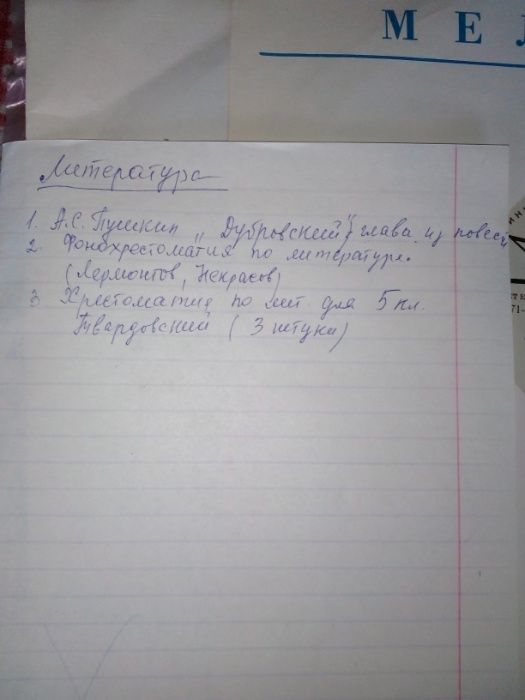 МЕЛ
Литература
1. А.С. Пушкин „Дубровский" (глава из повести
2. Фонохрестоматия по литературе.
(Лермонтов, Некрасов)
3 Хрестоматия по лит. для 5 кл.
Твардовский (3 штуки)